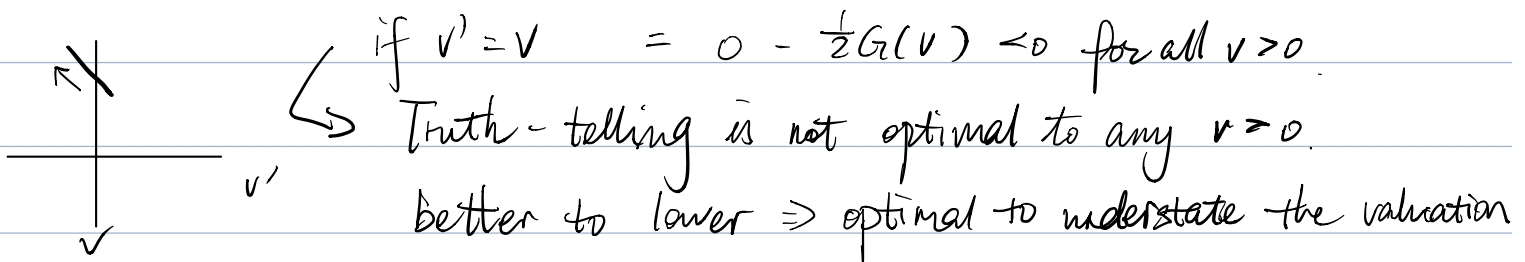 if v' = v = 0 - 1/2 G(v) < 0 for all v > 0.
Truth-telling is not optimal to any v > 0.
v'
better to lower ⇒ optimal to understate the valuation
v